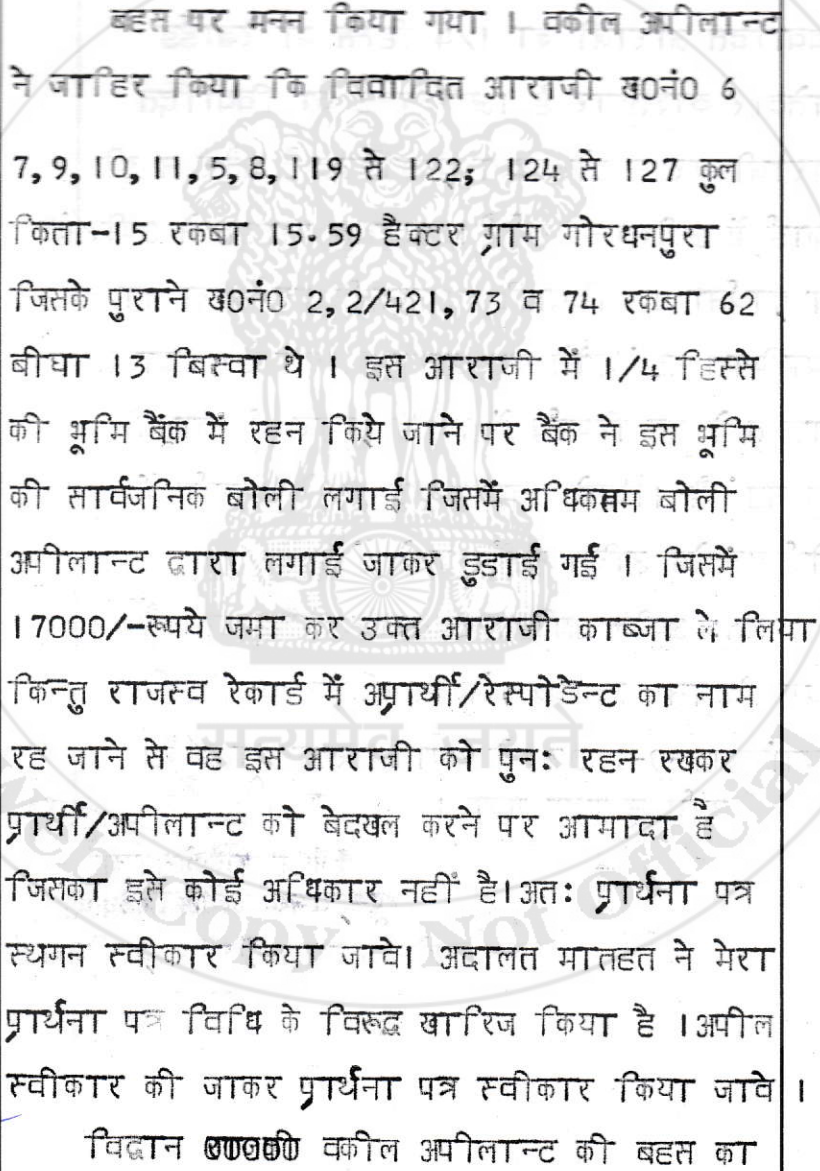 बहस पर मनन किया गया । वकील अपीलान्ट
ने जाहिर किया कि विवादित आराजी ख0नं0 6
7,9,10,11,5,8,119 से 122; 124 से 127 कुल
किता-15 रकबा 15.59 हैक्टर ग्राम गोरधनपुरा
जिसके पुराने ख0नं0 2,2/421,73 व 74 रकबा 62
बीघा 13 बिस्वा थे । इस आराजी में 1/4 हिस्से
की भूमि बैंक में रहन किये जाने पर बैंक ने इस भूमि
की सार्वजनिक बोली लगाई जिसमें अधिकतम बोली
अपीलान्ट द्वारा लगाई जाकर डुडाई गई । जिसमें
17000/-रूपये जमा कर उक्त आराजी काब्जा ले लिया
किन्तु राजस्व रेकार्ड में अप्रार्थी/रेस्पोडेन्ट का नाम
रह जाने से वह इस आराजी को पुन: रहन रखकर
प्रार्थी/अपीलान्ट को बेदखल करने पर आमादा है
जिसका इसे कोई अधिकार नहीं है।अत: प्रार्थना पत्र
स्थगन स्वीकार किया जावे। अदालत मातहत ने मेरा
प्रार्थना पत्र विधि के विरूद्ध खारिज किया है ।अपील
स्वीकार की जाकर प्रार्थना पत्र स्वीकार किया जावे ।
विद्वान वकील अपीलान्ट की बहस का
सत्यमेव जयते
Web Copy Not Official